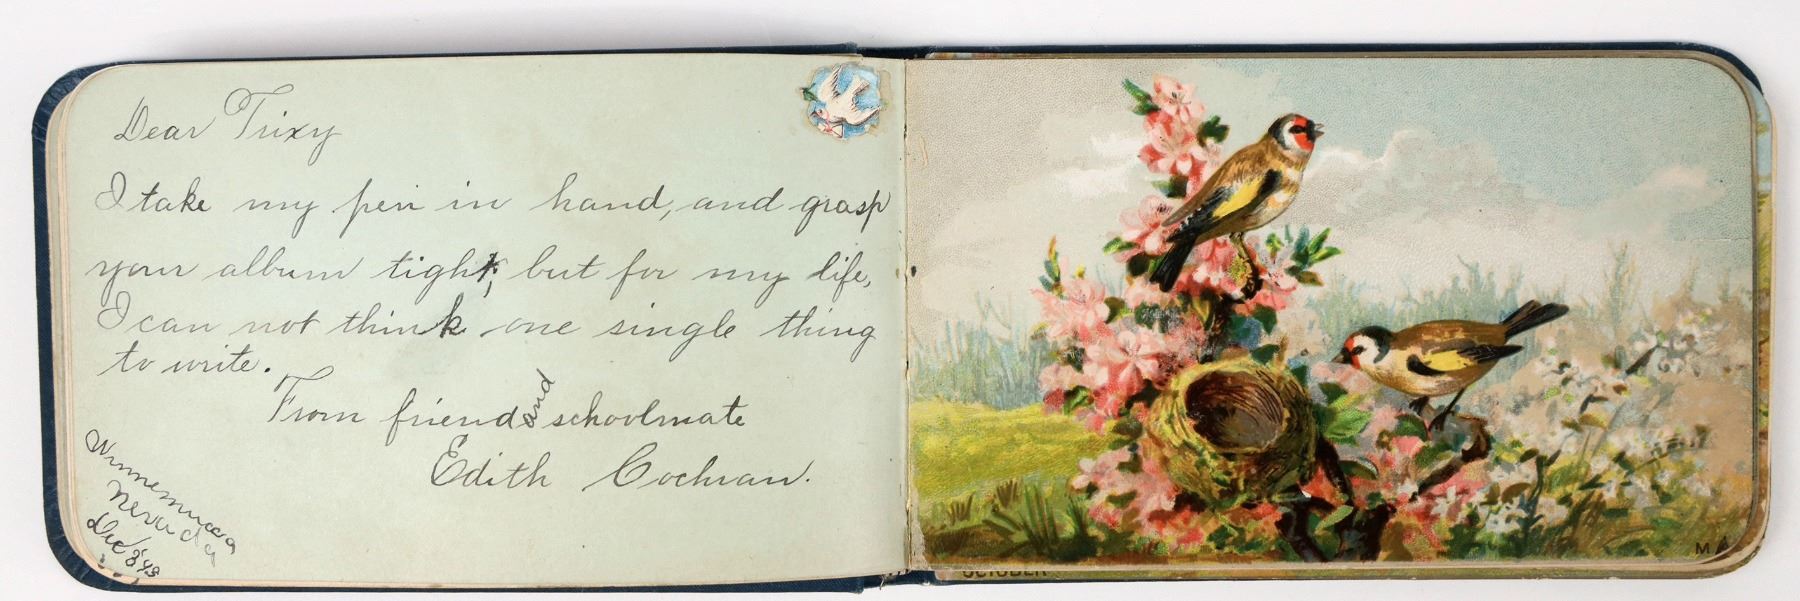 Dear Trixy
I take my pen in hand, and grasp
your album tight, but for my life,
I can not think one single thing
to write.
From friend and schoolmate
Edith Cochran.
Winnemucca
Nevada
Dec
OCTOBER